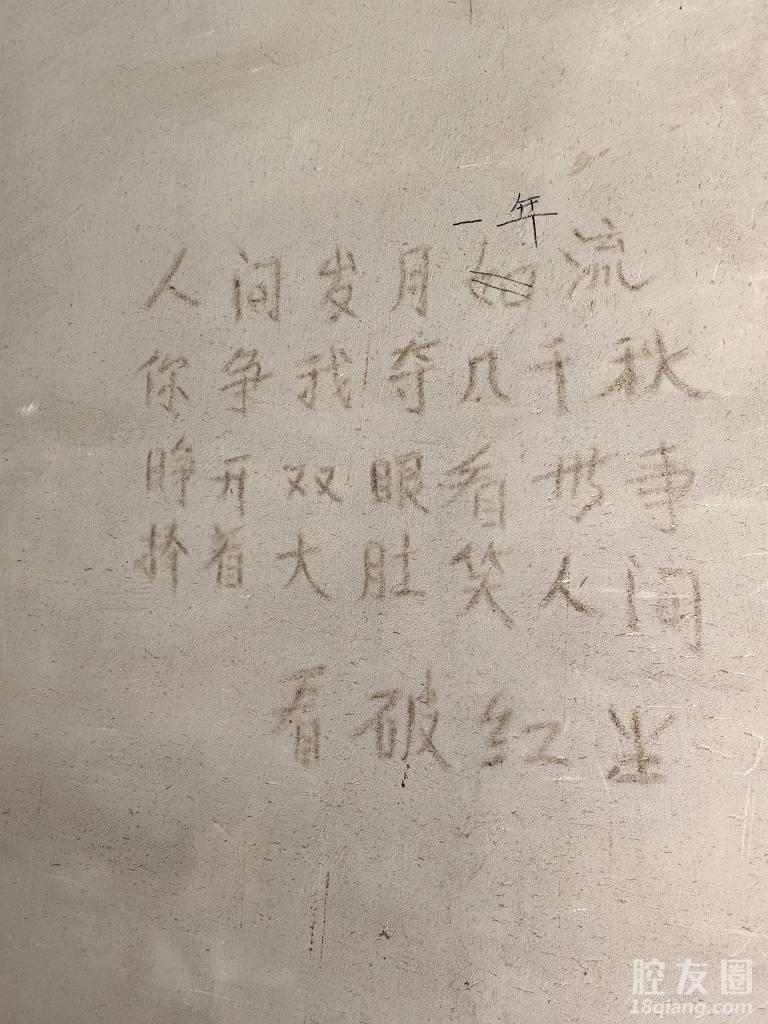 一年
人间岁月如流
你争我夺几千秋
睁开双眼看世事
捧着大肚笑人间
看破红尘
腔友圈
18qiang.com